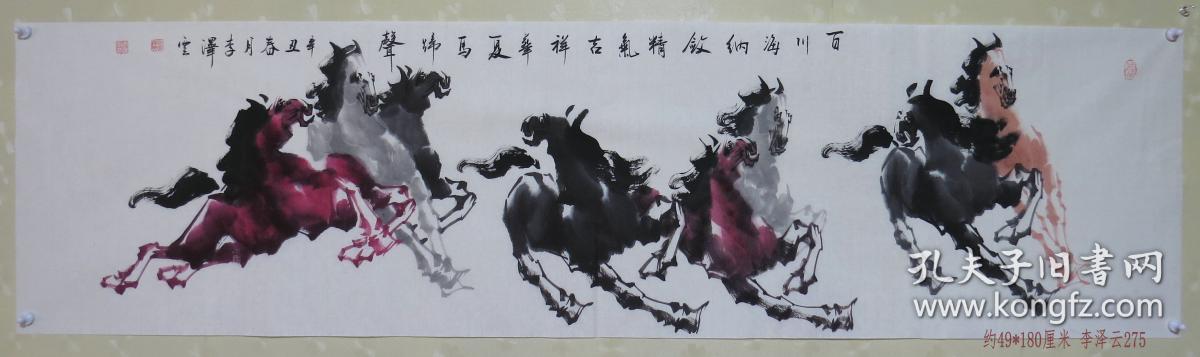 百川海纳敛精氣吉祥華夏馬蹄聲 辛丑春月李澤雲
孔夫子旧書网
www.kongfz.com
约49*180厘米 李泽云275